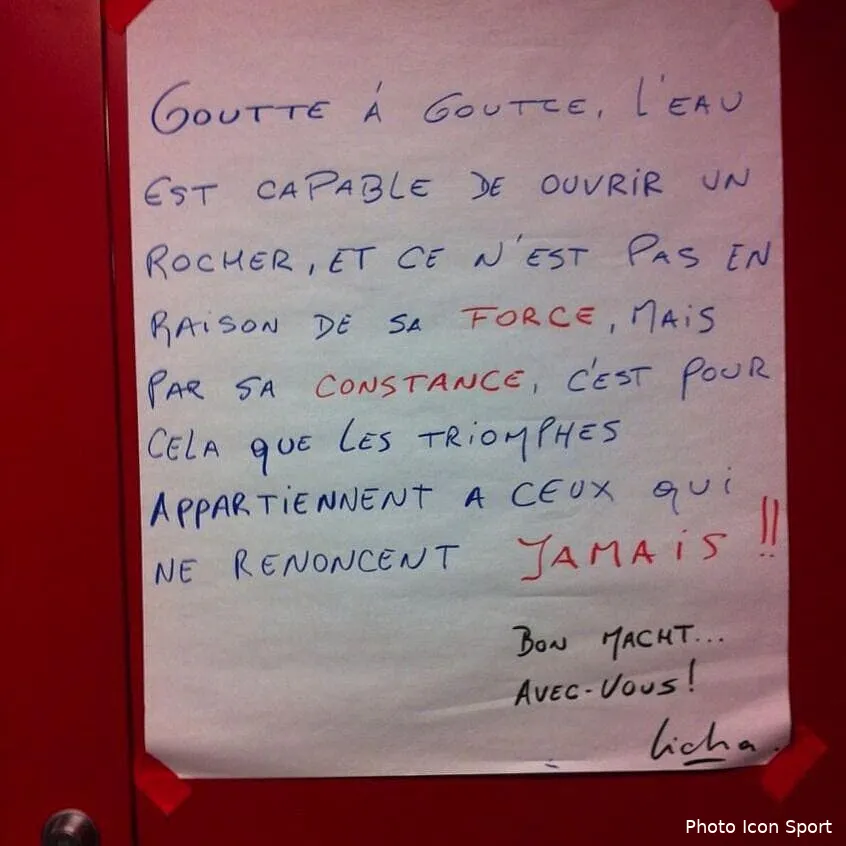 GOUTTE Á GOUTTE, L'EAU
EST CAPABLE DE OUVRIR UN
ROCHER, ET CE N'EST PAS EN
RAISON DE SA FORCE, MAIS
PAR SA CONSTANCE, C'EST POUR
CELA QUE LES TRIOMPHES
APPARTIENNENT A CEUX QUI
NE RENONCENT JAMAIS !!
BON MACHT...
AVEC-VOUS!
Licha.
Photo Icon Sport